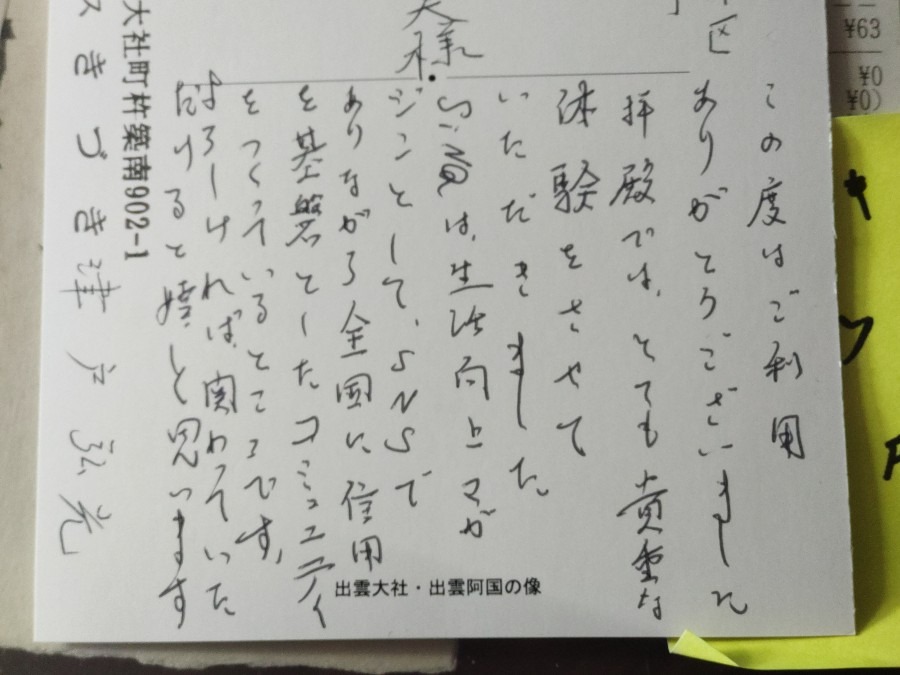 区
様
この度はご利用
ありがとうございました
拝殿では、とても貴重な
体験をさせて
いただきました。
は、生活向上マガ
ジンとして、SNSで
ありながら全国に信用
を基盤としたコミュニティ
をつくっているところです。
よろしければ、関わっていた
だけると嬉しと思います
大社町杵築南902-1
きづき 津戸弘光
出雲大社・出雲阿国の像
¥63
¥0
¥0)